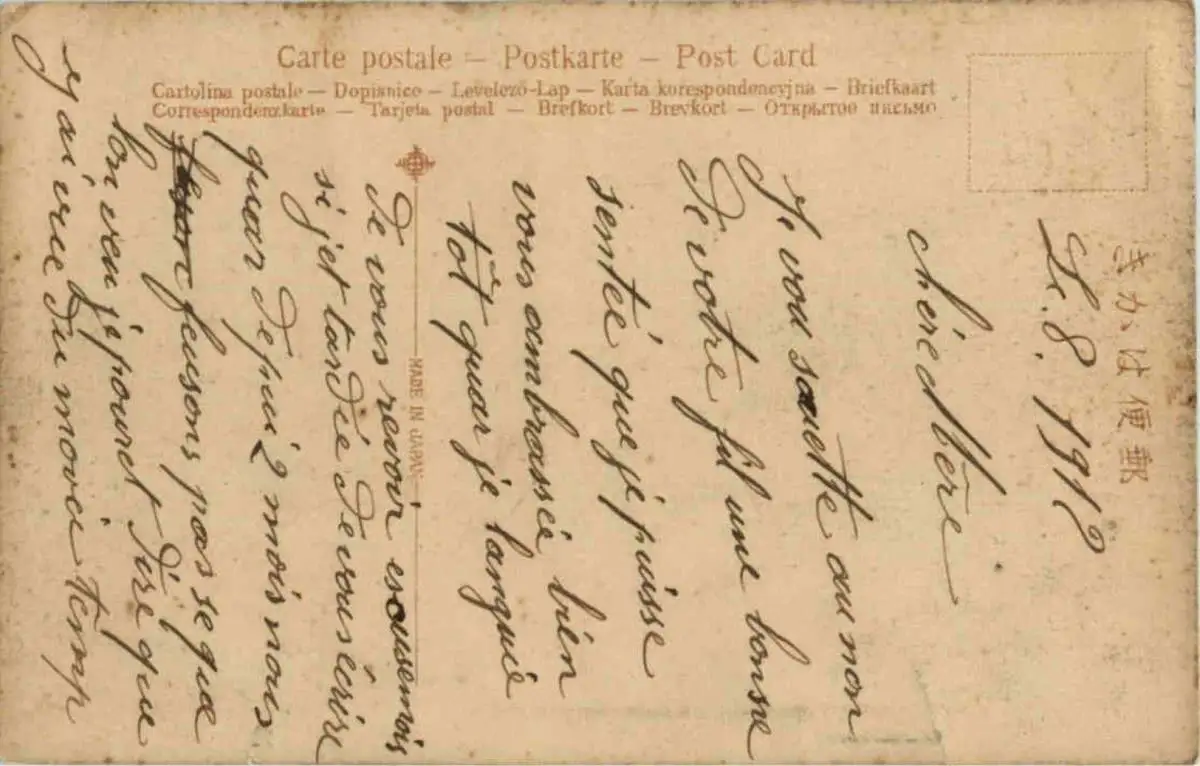 Carte postale — Postkarte — Post Card
Cartolina postale — Dopisnice — Levelező-Lap — Karta korespondencyjna — Briefkaart
Correspondenzkarte — Tarjeta postal — Brefkort — Brevkort — Открытое письмо
きかは便郵
MADE IN JAPAN
Le. 8. 1912
chère Mère
Je vou souette au non
De votre fil une bonne
sentée que je puisse
vous ambrassée bien
tôt quar je languie
De vous revoir escusemois
si jet tardée de vous écrire
quar depui 2 mois nous
feusons pas se que
lon veu je pouret Dire que
j ai vue du movei temp